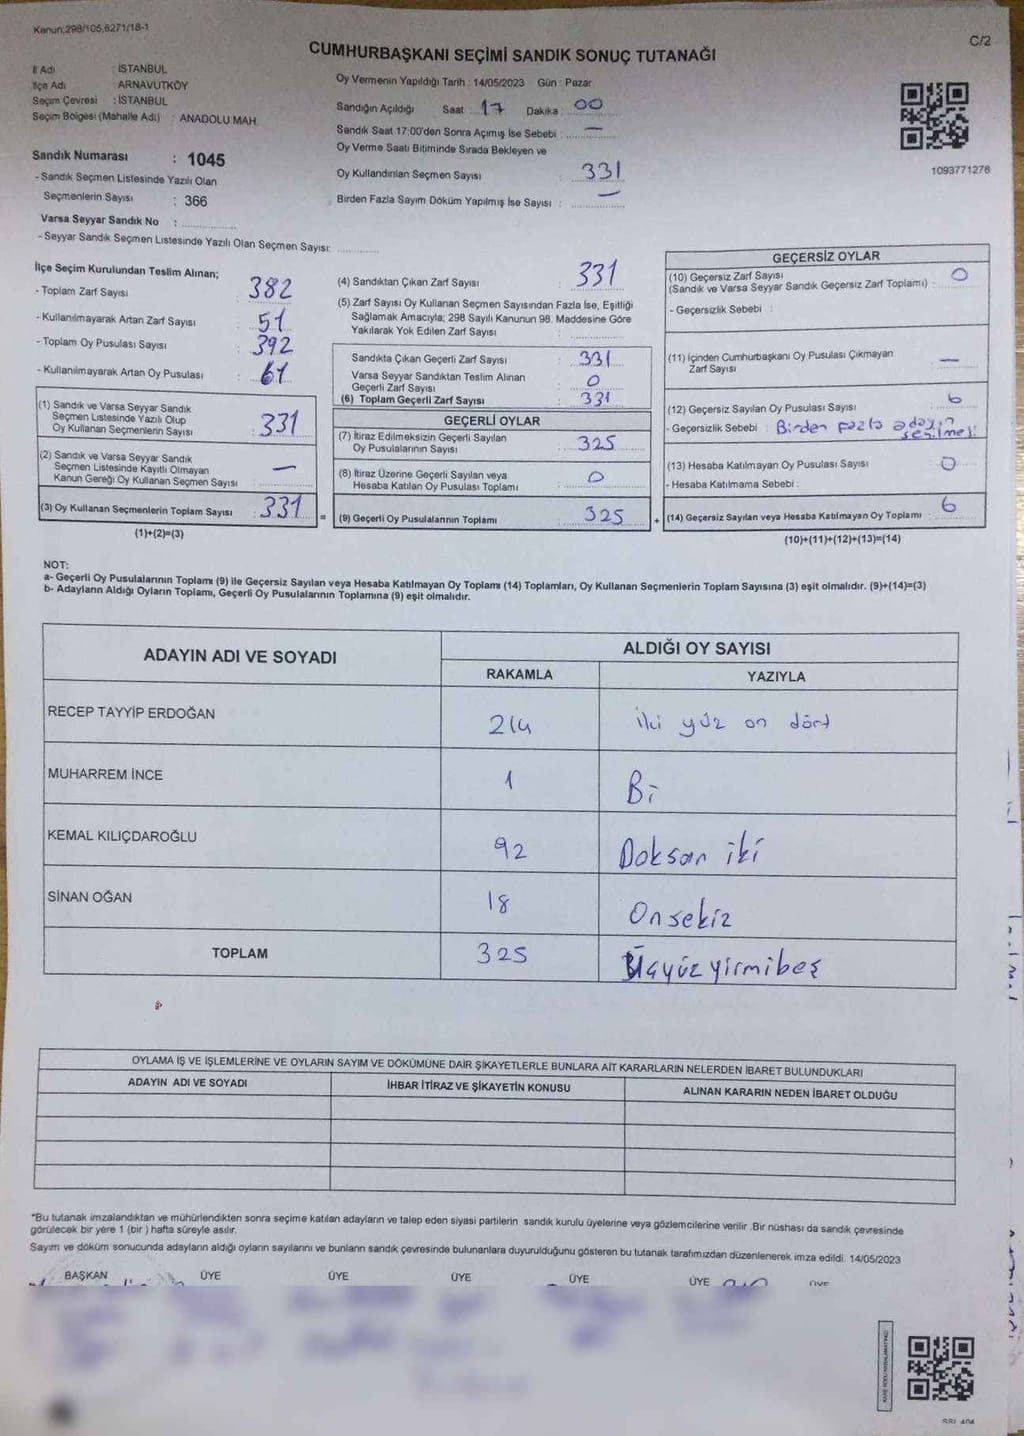 Kanun:298/105,6271/18-1
C/2
CUMHURBAŞKANI SEÇİMİ SANDIK SONUÇ TUTANAĞI
İl Adı : İSTANBUL
İlçe Adı : ARNAVUTKÖY
Seçim Çevresi : İSTANBUL
Seçim Bölgesi (Mahalle Adı) : ANADOLU MAH.
Sandık Numarası : 1045
- Sandık Seçmen Listesinde Yazılı Olan
Seçmenlerin Sayısı : 366
Varsa Seyyar Sandık No :
- Seyyar Sandık Seçmen Listesinde Yazılı Olan Seçmen Sayısı:
Oy Vermenin Yapıldığı Tarih : 14/05/2023 Gün : Pazar
Sandığın Açıldığı Saat 17 Dakika : 00
Sandık Saat 17:00'den Sonra Açımış İse Sebebi : —
Oy Verme Saati Bitiminde Sırada Bekleyen ve
Oy Kullandırılan Seçmen Sayısı : 331
Birden Fazla Sayım Döküm Yapılmış İse Sayısı : —
1093771278
İlçe Seçim Kurulundan Teslim Alınan;
- Toplam Zarf Sayısı : 382
- Kullanılmayarak Artan Zarf Sayısı : 51
- Toplam Oy Pusulası Sayısı : 392
- Kullanılmayarak Artan Oy Pusulası : 61
(1) Sandık ve Varsa Seyyar Sandık
Seçmen Listesinde Yazılı Olup
Oy Kullanan Seçmenlerin Sayısı : 331
(2) Sandık ve Varsa Seyyar Sandık
Seçmen Listesinde Kayıtlı Olmayan
Kanun Gereği Oy Kullanan Seçmen Sayısı : —
(3) Oy Kullanan Seçmenlerin Toplam Sayısı : 331
(1)+(2)=(3)
(4) Sandıktan Çıkan Zarf Sayısı : 331
(5) Zarf Sayısı Oy Kullanan Seçmen Sayısından Fazla İse, Eşitliği
Sağlamak Amacıyla; 298 Sayılı Kanunun 98. Maddesine Göre
Yakılarak Yok Edilen Zarf Sayısı :
Sandıkta Çıkan Geçerli Zarf Sayısı : 331
Varsa Seyyar Sandıktan Teslim Alınan
Geçerli Zarf Sayısı : 0
(6) Toplam Geçerli Zarf Sayısı : 331
GEÇERLİ OYLAR
(7) İtiraz Edilmeksizin Geçerli Sayılan
Oy Pusulalarının Sayısı : 325
(8) İtiraz Üzerine Geçerli Sayılan veya
Hesaba Katılan Oy Pusulası Toplamı : 0
= (9) Geçerli Oy Pusulalarının Toplamı : 325
GEÇERSİZ OYLAR
(10) Geçersiz Zarf Sayısı
(Sandık ve Varsa Seyyar Sandık Geçersiz Zarf Toplamı) : 0
- Geçersizlik Sebebi :
(11) İçinden Cumhurbaşkanı Oy Pusulası Çıkmayan
Zarf Sayısı : —
(12) Geçersiz Sayılan Oy Pusulası Sayısı : 6
- Geçersizlik Sebebi : Birden fazla adayın
seçilmesi
(13) Hesaba Katılmayan Oy Pusulası Sayısı : 0
- Hesaba Katılmama Sebebi :
+ (14) Geçersiz Sayılan veya Hesaba Katılmayan Oy Toplamı : 6
(10)+(11)+(12)+(13)=(14)
NOT:
a- Geçerli Oy Pusulalarının Toplamı (9) ile Geçersiz Sayılan veya Hesaba Katılmayan Oy Toplamı (14) Toplamları, Oy Kullanan Seçmenlerin Toplam Sayısına (3) eşit olmalıdır. (9)+(14)=(3)
b- Adayların Aldığı Oyların Toplamı, Geçerli Oy Pusulalarının Toplamına (9) eşit olmalıdır.
ADAYIN ADI VE SOYADI
ALDIĞI OY SAYISI
RAKAMLA YAZIYLA
RECEP TAYYİP ERDOĞAN 214 iki yüz on dört
MUHARREM İNCE 1 Bi
KEMAL KILIÇDAROĞLU 92 Doksan iki
SİNAN OĞAN 18 Onsekiz
TOPLAM 325 Üçyüzyirmibeş
OYLAMA İŞ VE İŞLEMLERİNE VE OYLARIN SAYIM VE DÖKÜMÜNE DAİR ŞİKAYETLERLE BUNLARA AİT KARARLARIN NELERDEN İBARET BULUNDUKLARI
ADAYIN ADI VE SOYADI İHBAR İTİRAZ VE ŞİKAYETİN KONUSU ALINAN KARARIN NEDEN İBARET OLDUĞU
*Bu tutanak imzalandıktan ve mühürlendikten sonra seçime katılan adayların ve talep eden siyasi partilerin sandık kurulu üyelerine veya gözlemcilerine verilir .Bir nüshası da sandık çevresinde
görülecek bir yere 1 (bir ) hafta süreyle asılır.
Sayım ve döküm sonucunda adayların aldığı oyların sayılarını ve bunların sandık çevresinde bulunanlara duyurulduğunu gösteren bu tutanak tarafımızdan düzenlenerek imza edildi. 14/05/2023
BAŞKAN ÜYE ÜYE ÜYE ÜYE ÜYE ÜYE